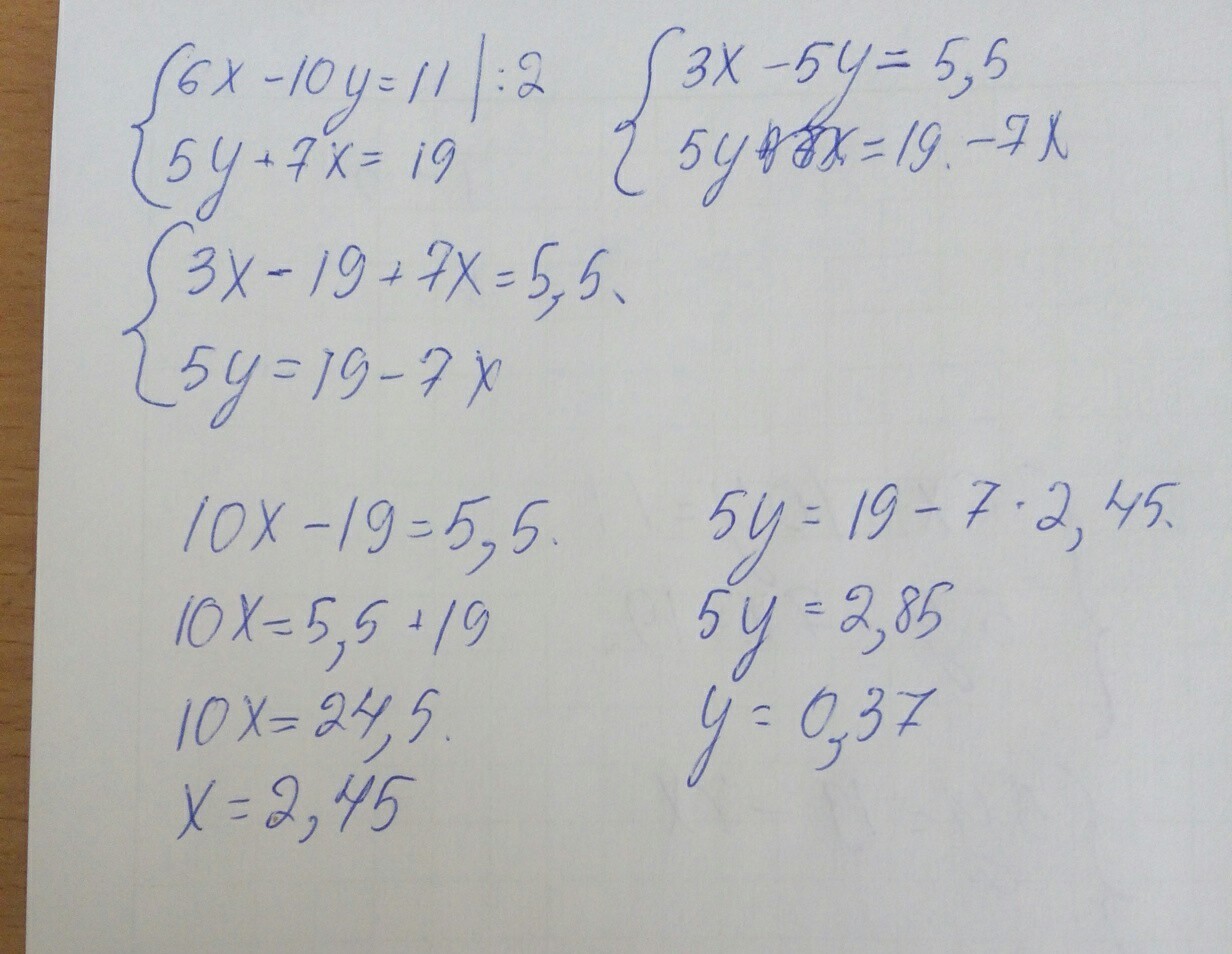 6x - 10y = 11 | : 2
5y + 7x = 19
3x - 5y = 5,5
5y = 19. - 7x
3x - 19 + 7x = 5,5.
5y = 19 - 7x
10x - 19 = 5,5.
10x = 5,5 + 19
10x = 24,5.
x = 2,45
5y = 19 - 7 · 2,45.
5y = 2,85
y = 0,37